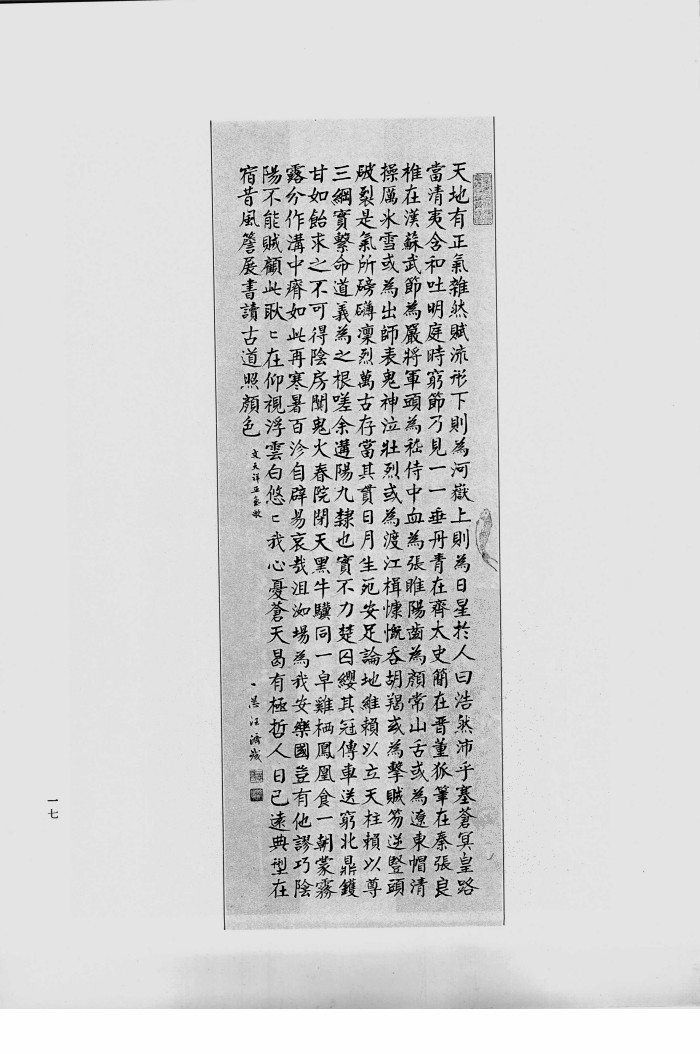 天地有正氣雜然賦流形下則為河嶽上則為日星於人曰浩然沛乎塞蒼冥皇路
當清夷含和吐明庭時窮節乃見一一垂丹青在齊太史簡在晋董狐筆在秦張良
椎在漢蘇武節為嚴將軍頭為嵇侍中血為張睢陽齒為顏常山舌或為遼東帽清
操厲冰雪或為出師表鬼神泣壯烈或為渡江楫慷慨吞胡羯或為擊賊笏逆豎頭
破裂是氣所磅礴凜烈萬古存當其貫日月生死安足論地維賴以立天柱賴以尊
三綱實繫命道義為之根嗟余遘陽九隸也實不力楚囚纓其冠傳車送窮北鼎鑊
甘如飴求之不可得陰房闃鬼火春院閉天黑牛驥同一皁雞栖鳳凰食一朝蒙霧
露分作溝中瘠如此再寒暑百沴自辟易哀哉沮洳場為我安樂國豈有他謬巧陰
陽不能賊顧此耿〻在仰視浮雲白悠〻我心憂蒼天曷有極哲人日已遠典型在
宿昔風簷展書讀古道照顏色
文天祥正氣歌
汪濟
一七